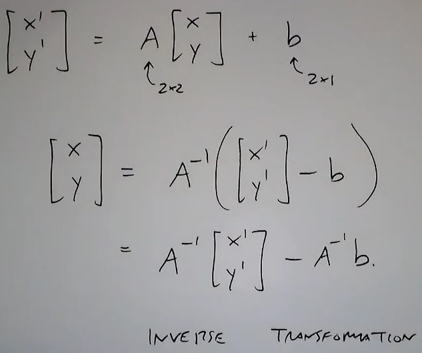 [x' y'] = A [x y] + b
↑ 2×2 ↑ 2×1
[x y] = A⁻¹ ([x' y'] − b)
= A⁻¹ [x' y'] − A⁻¹ b.
INVERSE TRANSFORMATION